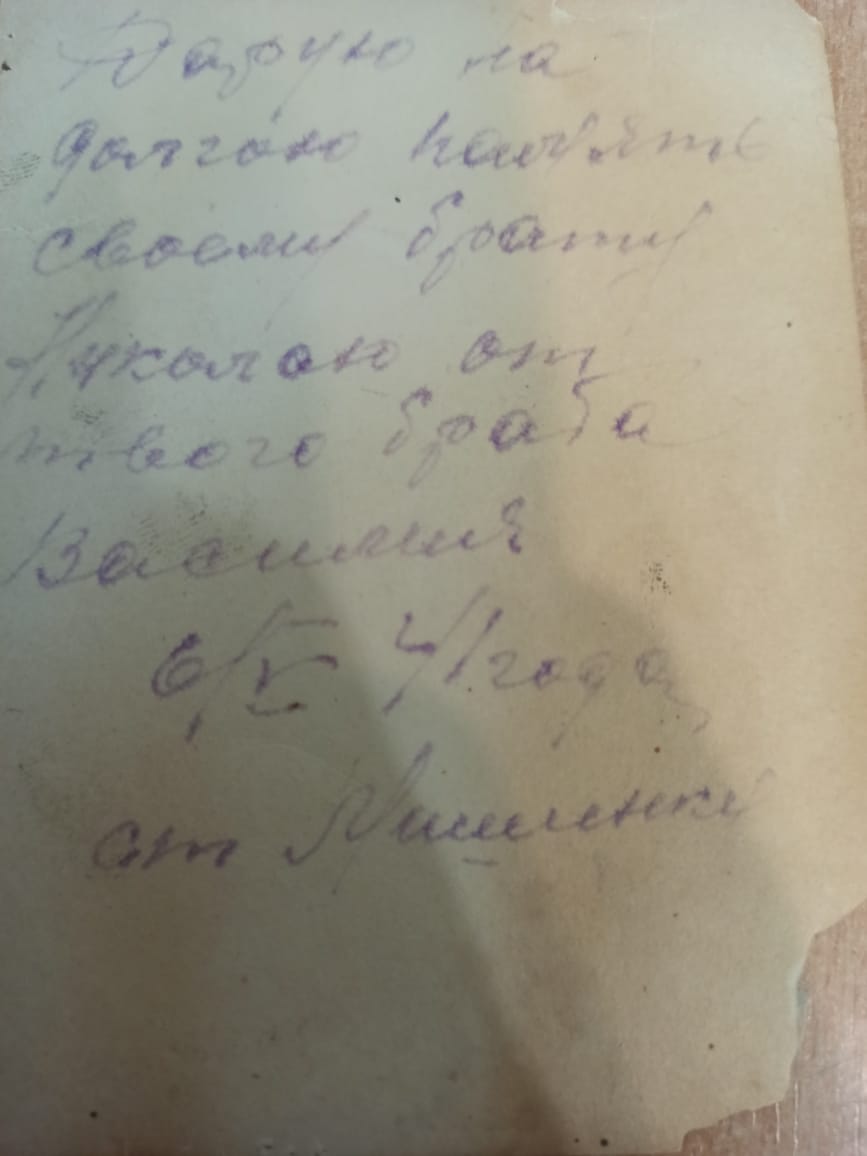 Дарую на
долгою пам'ять
своему брату
Николою от
твого брата
Василия
6/V 41 года
от Мишенки